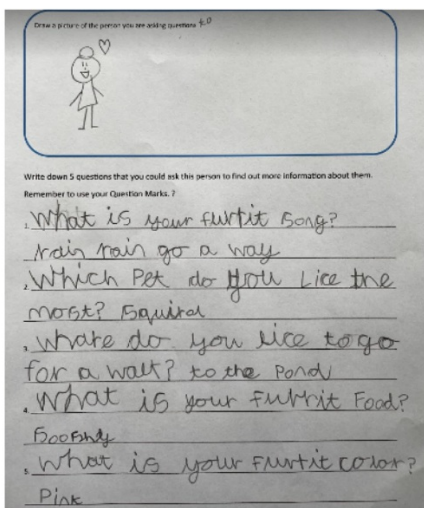 Draw a picture of the person you are asking questions to
Write down 5 questions that you could ask this person to find out more information about them.
Remember to use your Question Marks. ?
1. What is your furtit Song?
rain rain go a way
2. Which Pet do you Lice the
most? Squirel
3. Whare do you lice to go
for a walt? to the Pond
4. What is your Fubrit Food?
5. What is your Fuvtit color?
Pink